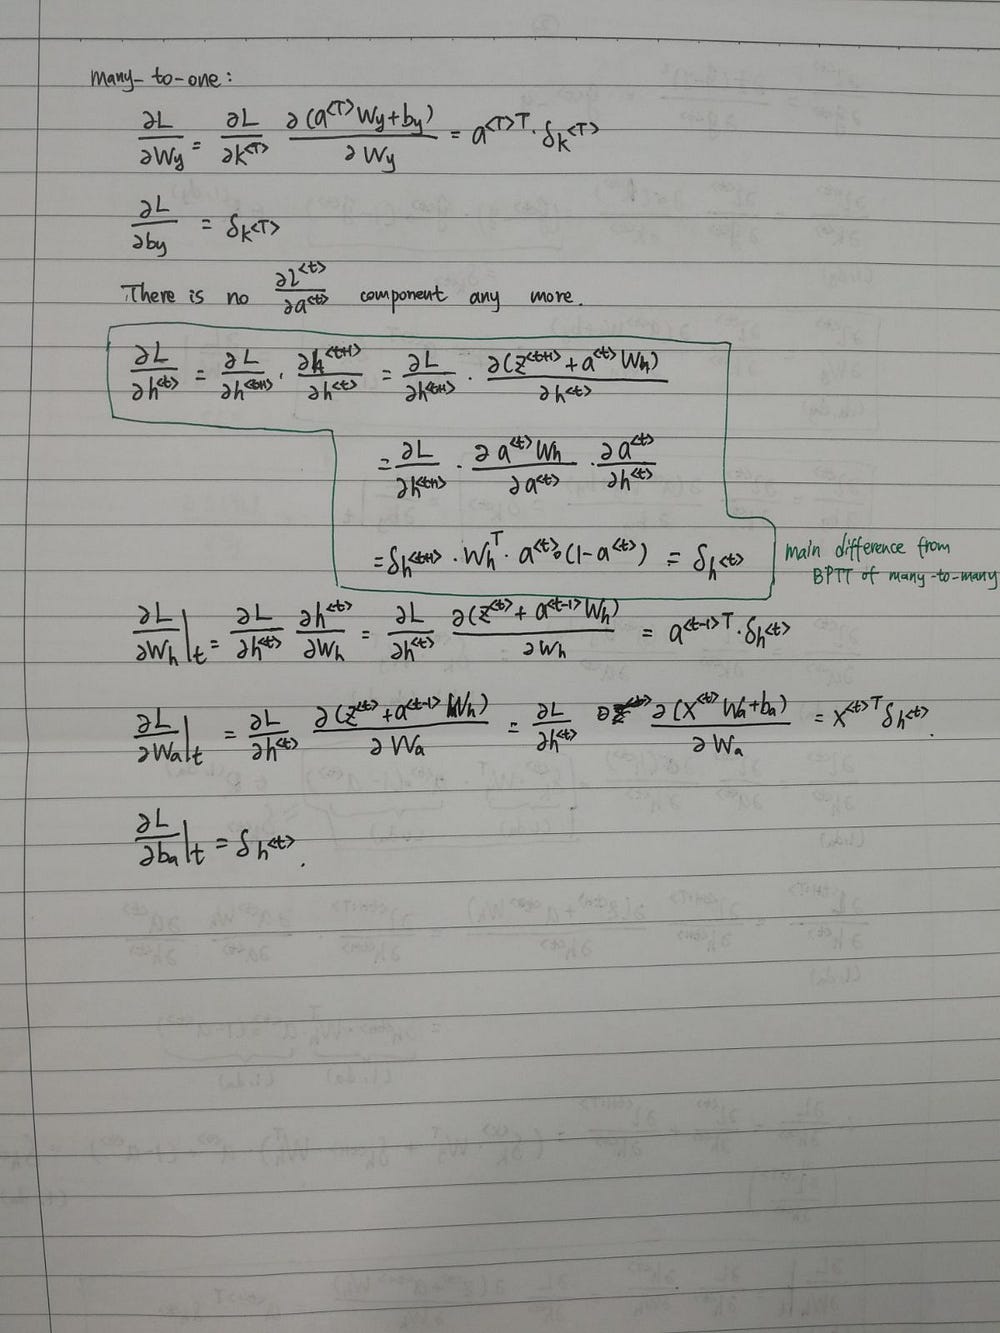 many-to-one:
∂L/∂Wy = ∂L/∂k<T> ∂(a<T>Wy+by)/∂Wy = a<T>T · δk<T>
∂L/∂by = δk<T>
There is no ∂l<t>/∂a<t> component any more.
∂L/∂h<t> = ∂L/∂h<t+1> · ∂h<t+1>/∂h<t> = ∂L/∂h<t+1> · ∂(z<t+1> + a<t>Wh)/∂h<t>
= ∂L/∂h<t+1> · ∂a<t>Wh/∂a<t> · ∂a<t>/∂h<t>
= δh<t+1> · Wh^T · a<t>∘(1-a<t>) = δh<t>
main difference from
BPTT of many-to-many
∂L/∂Wh|t = ∂L/∂h<t> ∂h<t>/∂Wh = ∂L/∂h<t> ∂(z<t> + a<t-1>Wh)/∂Wh = a<t-1>T · δh<t>
∂L/∂Wa|t = ∂L/∂h<t> ∂(z<t> + a<t-1>Wh)/∂Wa = ∂L/∂h<t> ∂(x<t>Wa+ba)/∂Wa = x<t>T δh<t>.
∂L/∂ba|t = δh<t>.